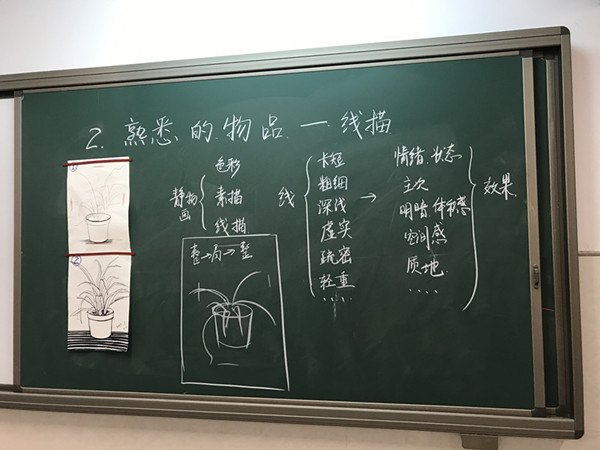 2. 熟悉的物品—线描
①
②
静物画
色彩
素描
线描
整→局→整
线
长短
粗细
深浅
虚实
疏密
轻重
....
→
情绪.状态
主次
明暗.体积感
空间感
质地.
....
效果